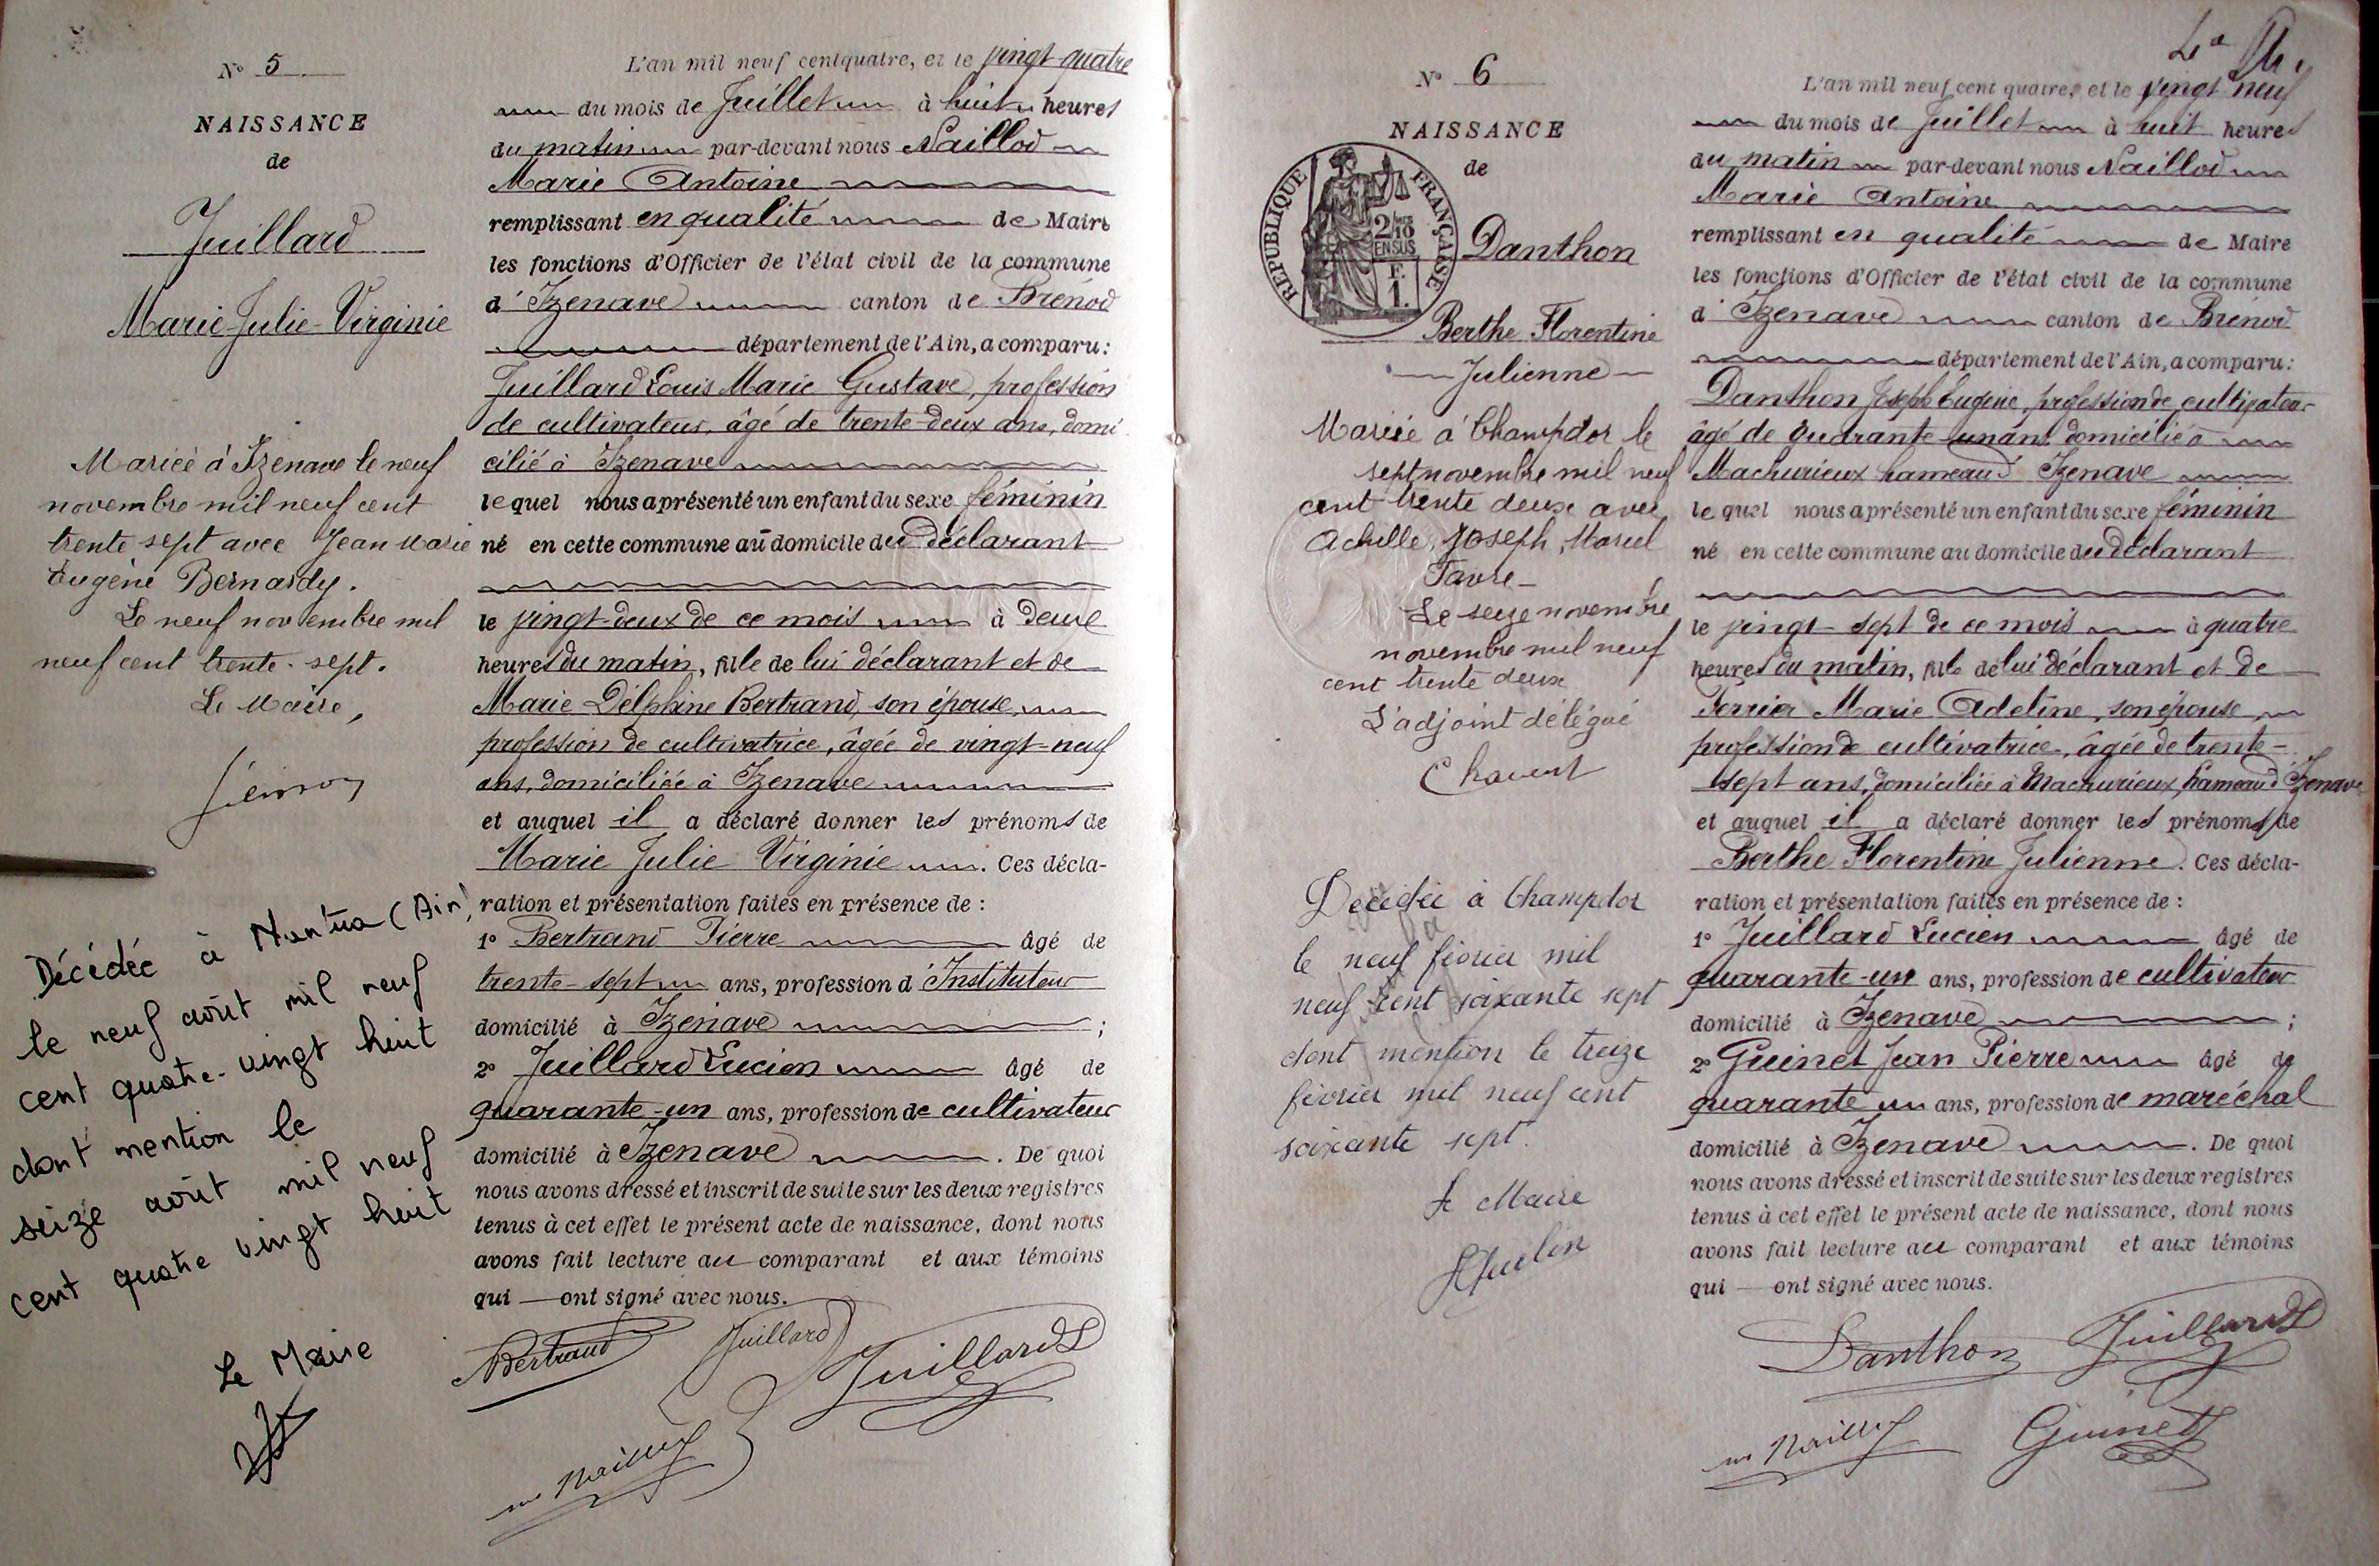 N° 5
NAISSANCE
de
Juillard
Marie-Julie-Virginie
Mariée à Izenave le neuf
novembre mil neuf cent
trente sept avec Jean Marie
Eugène Bernardy.
Le neuf novembre mil
neuf cent trente-sept.
Le Maire,
Décédée à Nantua (Ain)
le neuf août mil neuf
cent quatre-vingt huit
dont mention le
seize août mil neuf
cent quatre vingt huit
Le Maire
L'an mil neuf cent quatre, et le vingt-quatre
du mois de Juillet à huit heures
du matin par-devant nous Naillod
Marie Antoine
remplissant en qualité de Maire
les fonctions d'Officier de l'état civil de la commune
d'Izenave canton de Brénod
département de l'Ain, a comparu:
Juillard Louis Marie Gustave, profession
de cultivateur, âgé de trente-deux ans, domi
cilié à Izenave
lequel nous a présenté un enfant du sexe féminin
né en cette commune au domicile du déclarant
le vingt-deux de ce mois à deux
heures du matin, fille de lui déclarant et de
Marie Delphine Bertrand, son épouse,
profession de cultivatrice, âgée de vingt-neuf
ans, domiciliée à Izenave
et auquel il a déclaré donner les prénoms de
Marie Julie Virginie. Ces décla-
ration et présentation faites en présence de :
1° Bertrand Pierre âgé de
trente-sept ans, profession d'Instituteur
domicilié à Izenave ;
2° Juillard Lucien âgé de
quarante-un ans, profession de cultivateur
domicilié à Izenave. De quoi
nous avons dressé et inscrit de suite sur les deux registres
tenus à cet effet le présent acte de naissance, dont nous
avons fait lecture au comparant et aux témoins
qui — ont signé avec nous.
Bertrand Juillard Juillard L
N° 6
NAISSANCE
de
RÉPUBLIQUE FRANÇAISE
2/10
EN SUS
F.
1.
Danthon
Berthe Florentine
Julienne
Mariée à Champdor le
sept novembre mil neuf
cent trente deux avec
Achille, Joseph, Marcel
Favre
Le seize novembre
novembre mil neuf
cent trente deux
L'adjoint délégué
Chavent
Décédée à Champdor
le neuf février mil
neuf cent soixante sept
dont mention le treize
février mil neuf cent
soixante sept.
Le Maire
L'an mil neuf cent quatre, et le vingt neuf
du mois de Juillet à huit heures
du matin par-devant nous Naillod
Marie Antoine
remplissant en qualité de Maire
les fonctions d'Officier de l'état civil de la commune
d'Izenave canton de Brénod
département de l'Ain, a comparu:
Danthon Joseph Eugène, profession de cultivateur
âgé de quarante-un ans, domicilié à
Machurieux hameau d'Izenave
lequel nous a présenté un enfant du sexe féminin
né en cette commune au domicile du déclarant
le vingt-sept de ce mois à quatre
heures du matin, fille de lui déclarant et de
Perrier Marie Adeline, son épouse,
profession de cultivatrice, âgée de trente-
sept ans, domiciliée à Machurieux, hameau d'Izenave
et auquel il a déclaré donner les prénoms de
Berthe Florentine Julienne. Ces décla-
ration et présentation faites en présence de :
1° Juillard Lucien âgé de
quarante-un ans, profession de cultivateur
domicilié à Izenave ;
2° Guinet Jean Pierre âgé de
quarante ans, profession de maréchal
domicilié à Izenave. De quoi
nous avons dressé et inscrit de suite sur les deux registres
tenus à cet effet le présent acte de naissance, dont nous
avons fait lecture au comparant et aux témoins
qui — ont signé avec nous.
Danthon Juillard L
Guinet